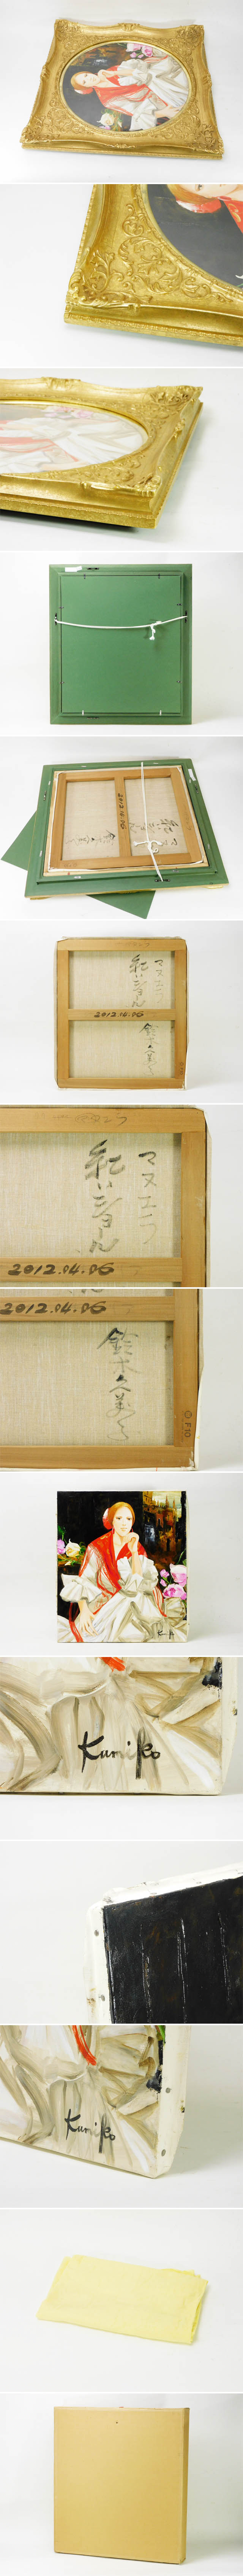 マヌエラ
紅いショール
2012.04.06
鈴木久美子
マヌエラ
紅いショール
2012.04.06
2012.04.06
F10
Kumiko
Kumiko